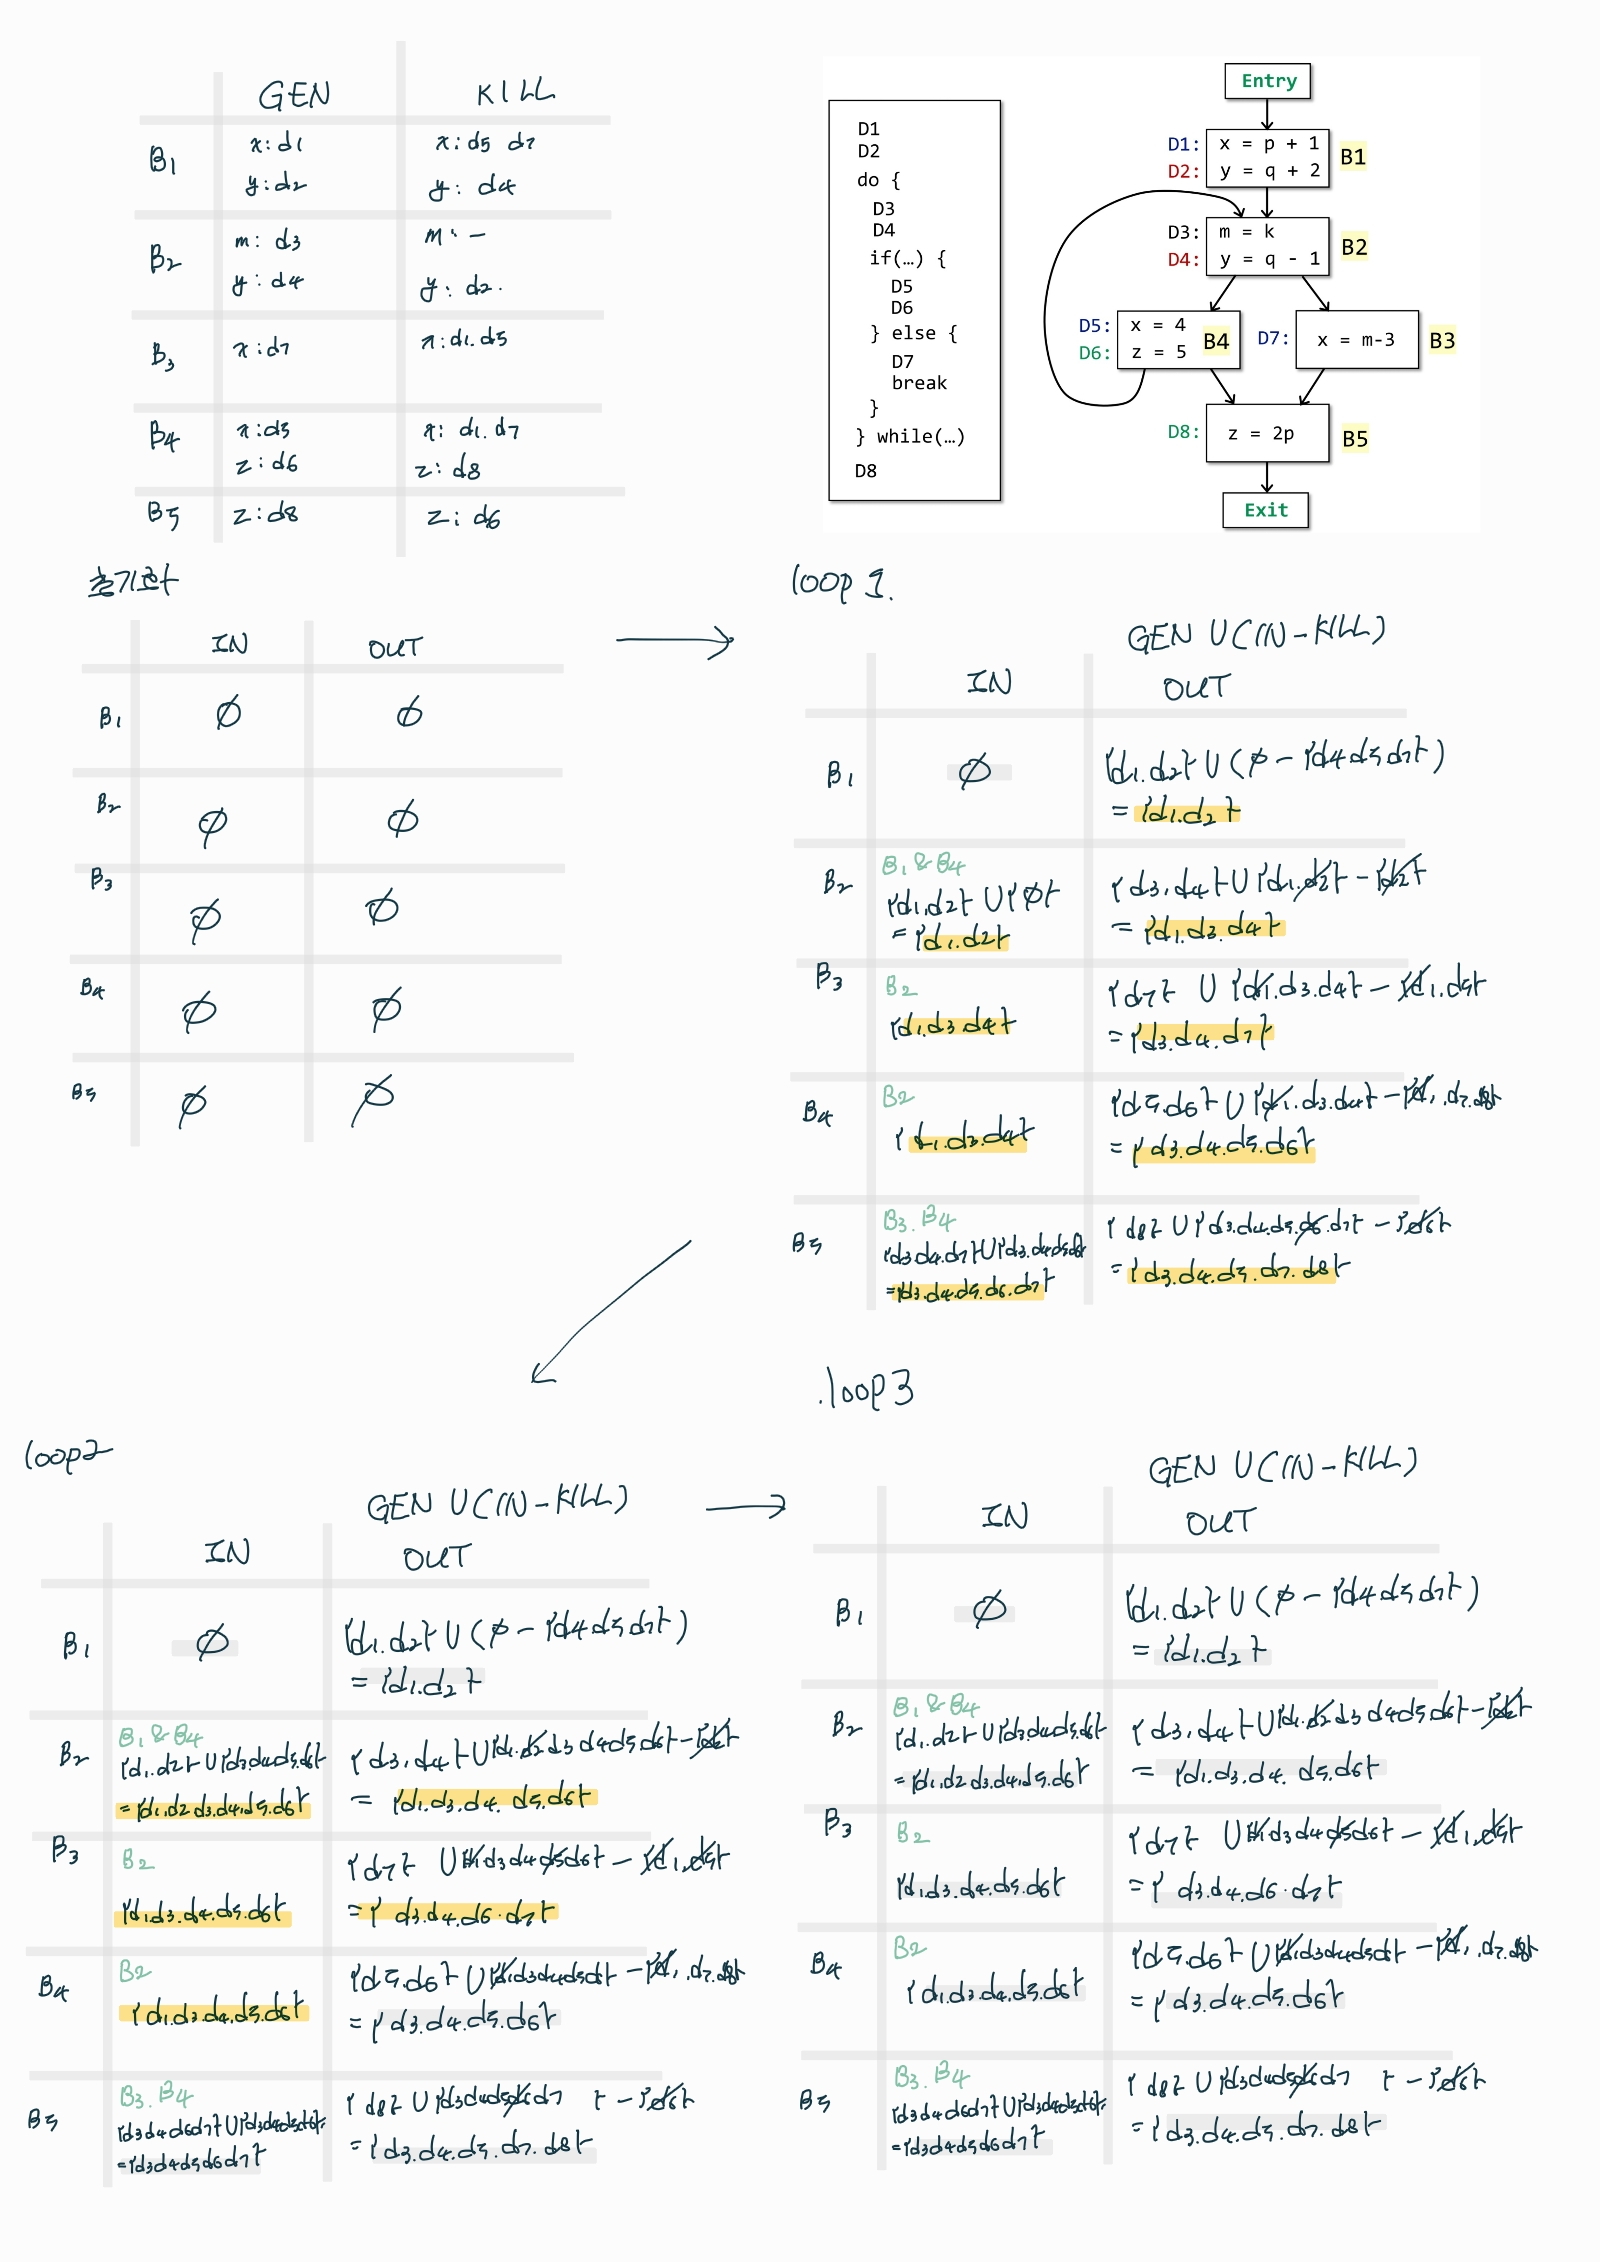 GEN KILL
B1
x: d1 x: d5 d7
y: d2 y: d4
B2
m: d3 m: -
y: d4 y: d2.
B3
x: d7 x: d1. d5
B4
x: d5 x: d1. d7
z: d6 z: d8
B5 z: d8 z: d6
D1
D2
do {
D3
D4
if(…) {
D5
D6
} else {
D7
break
}
} while(…)
D8
Entry
D1: x = p + 1 B1
D2: y = q + 2
D3: m = k B2
D4: y = q - 1
D5: x = 4
D6: z = 5 B4
D7: x = m-3 B3
D8: z = 2p B5
Exit
초기화
IN OUT
B1 ∅ ∅
B2 ∅ ∅
B3 ∅ ∅
B4 ∅ ∅
B5 ∅ ∅
loop 1.
GEN U (IN - KILL)
IN OUT
B1 ∅ {d1. d2} U (∅ - {d4 d5 d7})
= {d1. d2}
B2
B1 & B4
{d1. d2} U {∅} {d3, d4} U {d1. d2} - {d2}
= {d1. d2} = {d1. d3. d4}
B3
B2 {d7} U {d1. d3. d4} - {d1. d5}
{d1. d3 d4} = {d3. d4. d7}
B4
B2 {d5. d6} U {d1. d3. d4} - {d1, d7. d8}
{d1. d3. d4} = {d3. d4. d5. d6}
B5
B3. B4 {d8} U {d3. d4. d5. d6. d7} - {d6}
{d3. d4. d7} U {d3. d4 d5 d6}
= {d3. d4. d5. d6. d7} = {d3. d4. d5. d7. d8}
loop2
GEN U (IN - KILL)
IN OUT
B1 ∅ {d1. d2} U (∅ - {d4 d5 d7})
= {d1. d2}
B2
B1 & B4
{d1. d2} U {d3. d4 d5. d6} {d3, d4} U {d1. d2 d3 d4 d5. d6} - {d2}
= {d1. d2 d3. d4. d5. d6} = {d1. d3. d4. d5. d6}
B3
B2 {d7} U {d1 d3 d4 d5 d6} - {d1, d5}
{d1. d3. d4. d5. d6} = { d3. d4. d6. d7}
B4
B2 {d5. d6} U {d1 d3 d4 d5 d6} - {d1, d7. d8}
{d1. d3. d4. d5. d6} = {d3. d4. d5. d6}
B5
B3. B4 {d8} U {d3 d4 d5 d6 d7 } - {d6}
{d3 d4 d6 d7} U {d3 d4 d5 d6}
= {d3 d4 d5 d6 d7} = {d3. d4. d5. d7. d8}
.loop3
GEN U (IN - KILL)
IN OUT
B1 ∅ {d1. d2} U (∅ - {d4 d5 d7})
= {d1. d2}
B2
B1 & B4
{d1. d2} U {d3. d4 d5. d6} {d3, d4} U {d1. d2 d3 d4 d5. d6} - {d2}
= {d1. d2 d3. d4. d5. d6} = {d1. d3. d4. d5. d6}
B3
B2 {d7} U {d1 d3 d4 d5 d6} - {d1, d5}
{d1. d3. d4. d5. d6} = { d3. d4. d6. d7}
B4
B2 {d5. d6} U {d1 d3 d4 d5 d6} - {d1, d7. d8}
{d1. d3. d4. d5. d6} = {d3. d4. d5. d6}
B5
B3. B4 {d8} U {d3 d4 d5 d6 d7 } - {d6}
{d3 d4 d6 d7} U {d3 d4 d5 d6}
= {d3 d4 d5 d6 d7} = {d3. d4. d5. d7. d8}